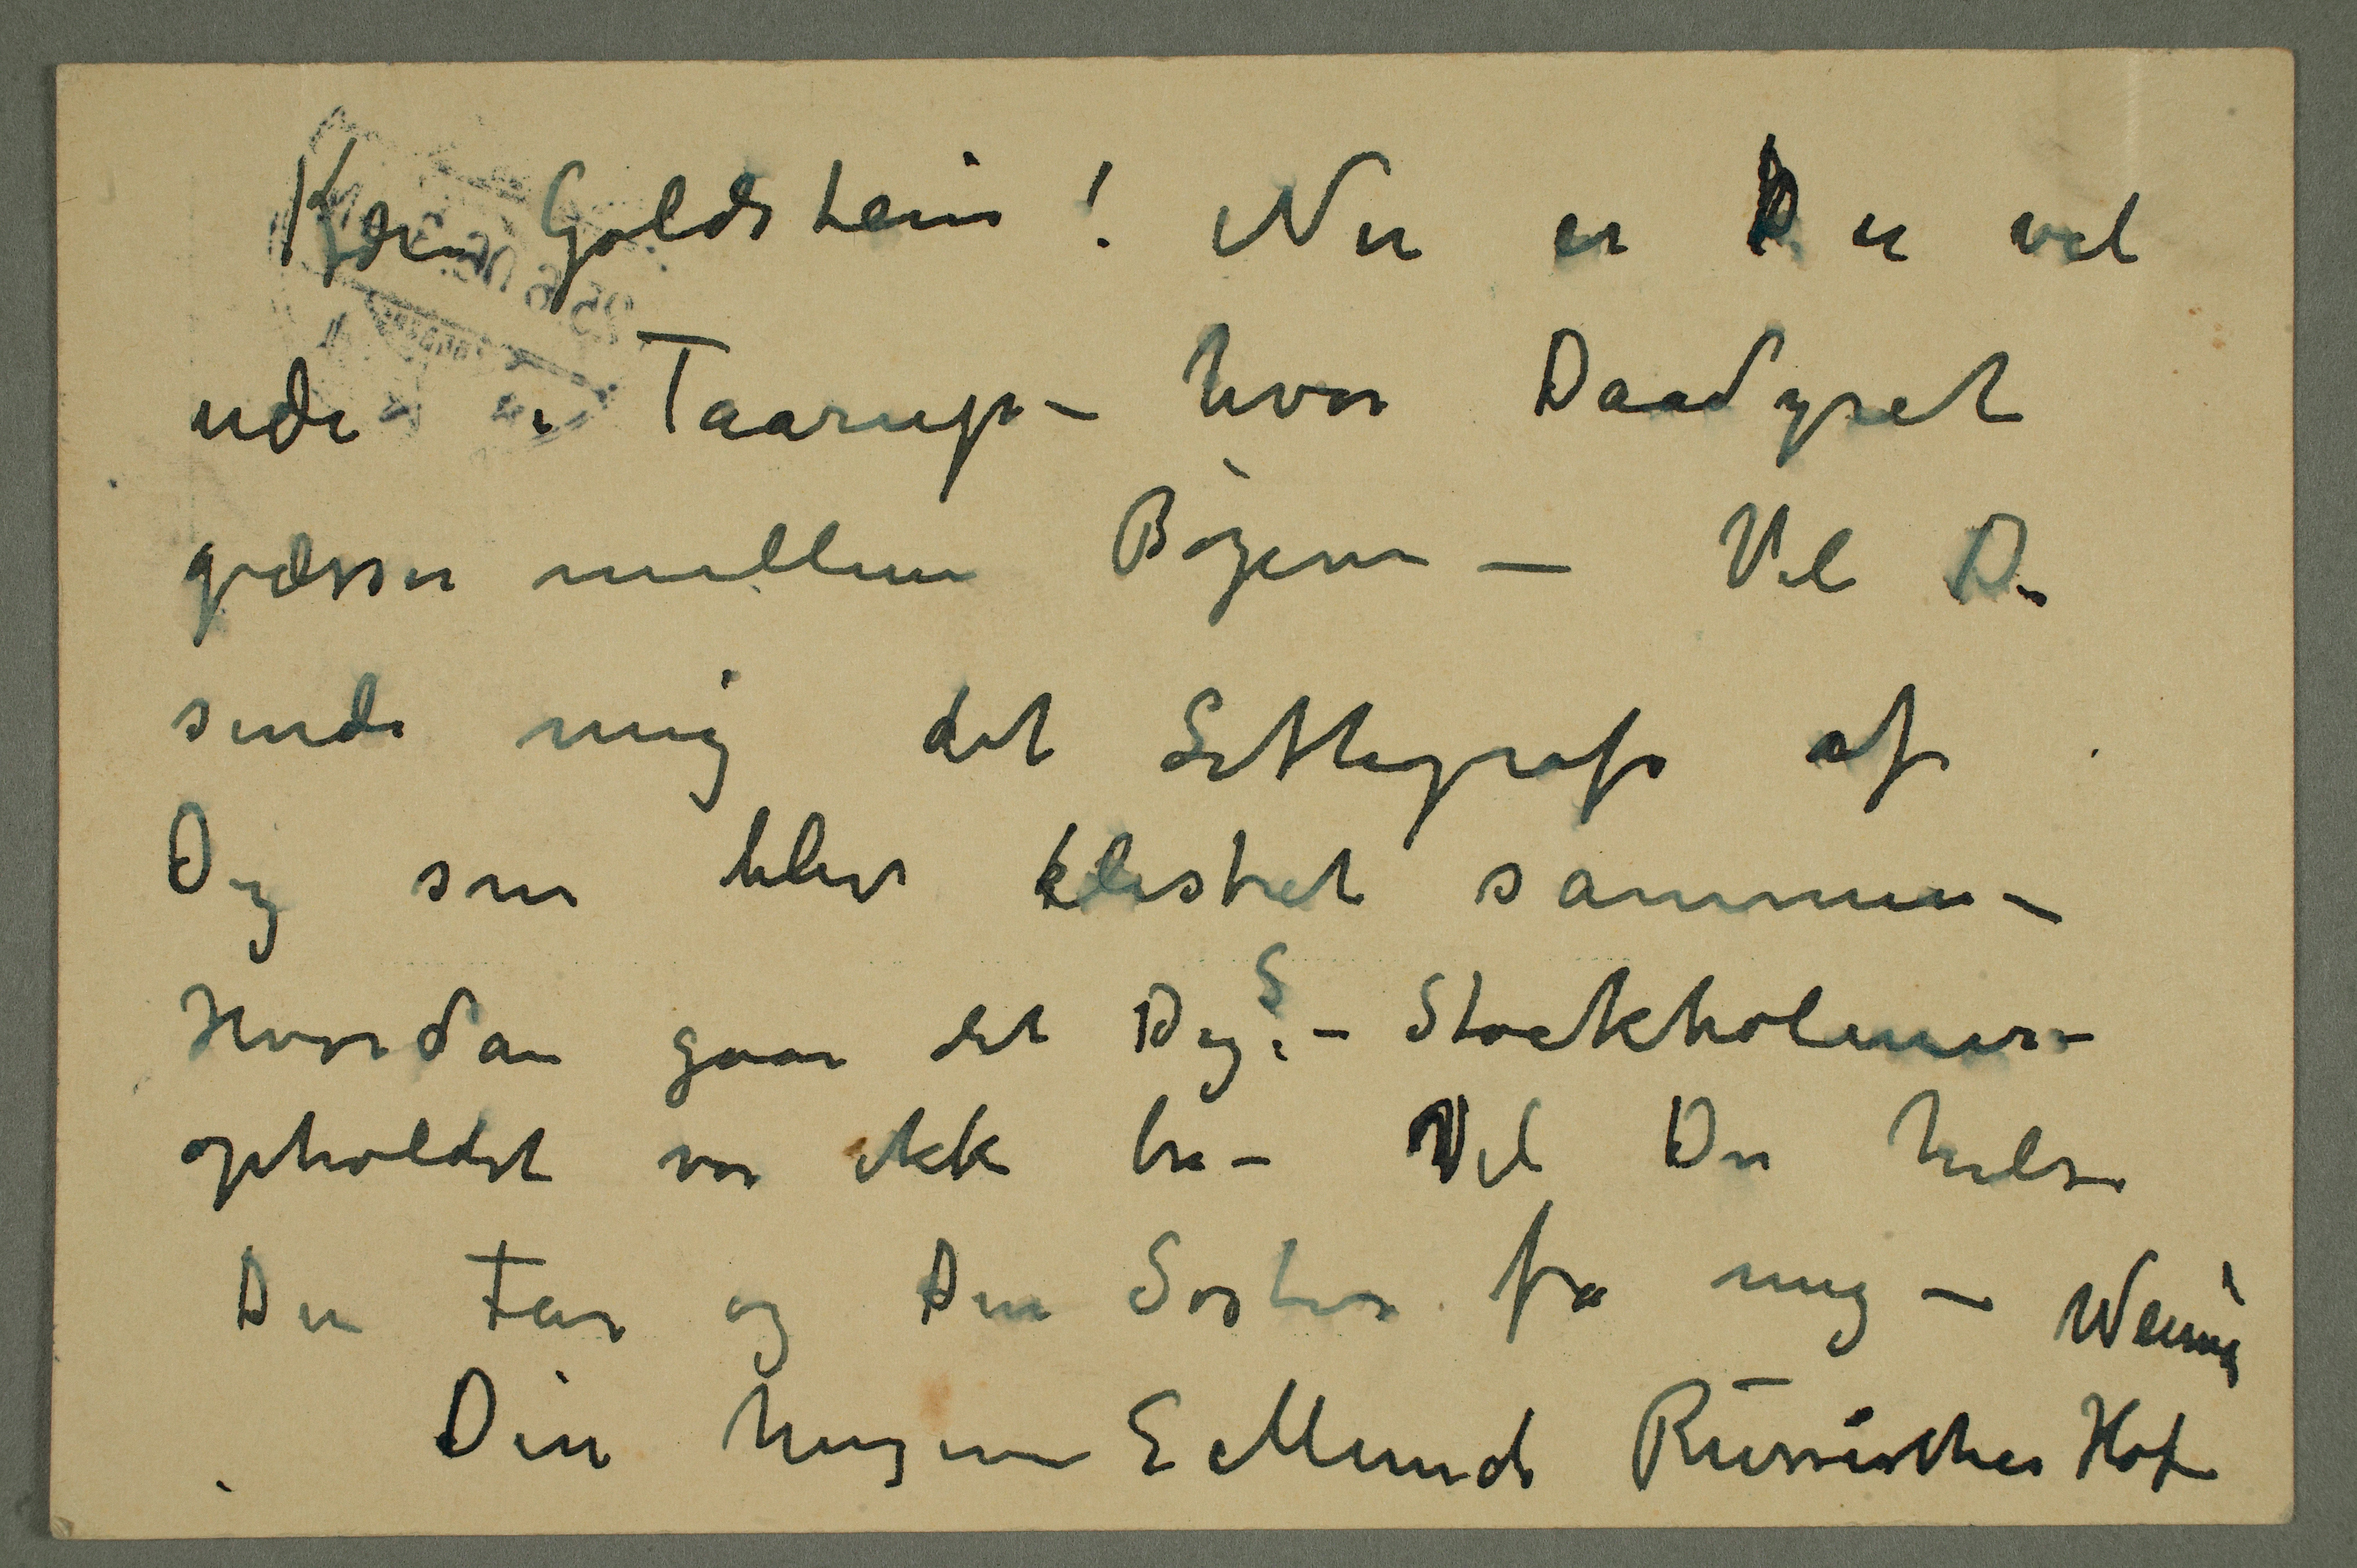 Kjære Goldstein! Nu er Du vel
ude i Taarup – hvor Daadyret
græsser mellem Bøgene – Vil Du
sende mig det Litthografi af
Dig som blev klistret sammen –
Hvordan gaar det Dig? – Stockholmer-
opholdet var ikke bra – Vil Du hilse
Din Far og Din Søster fra mig –
Din hengivne E Munch Russischer Hof
Weimar